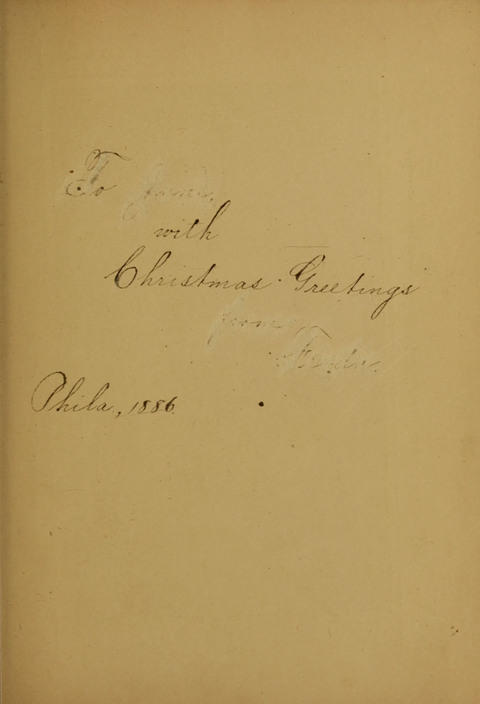 To
with
Christmas Greetings
from
Phila, 1886.